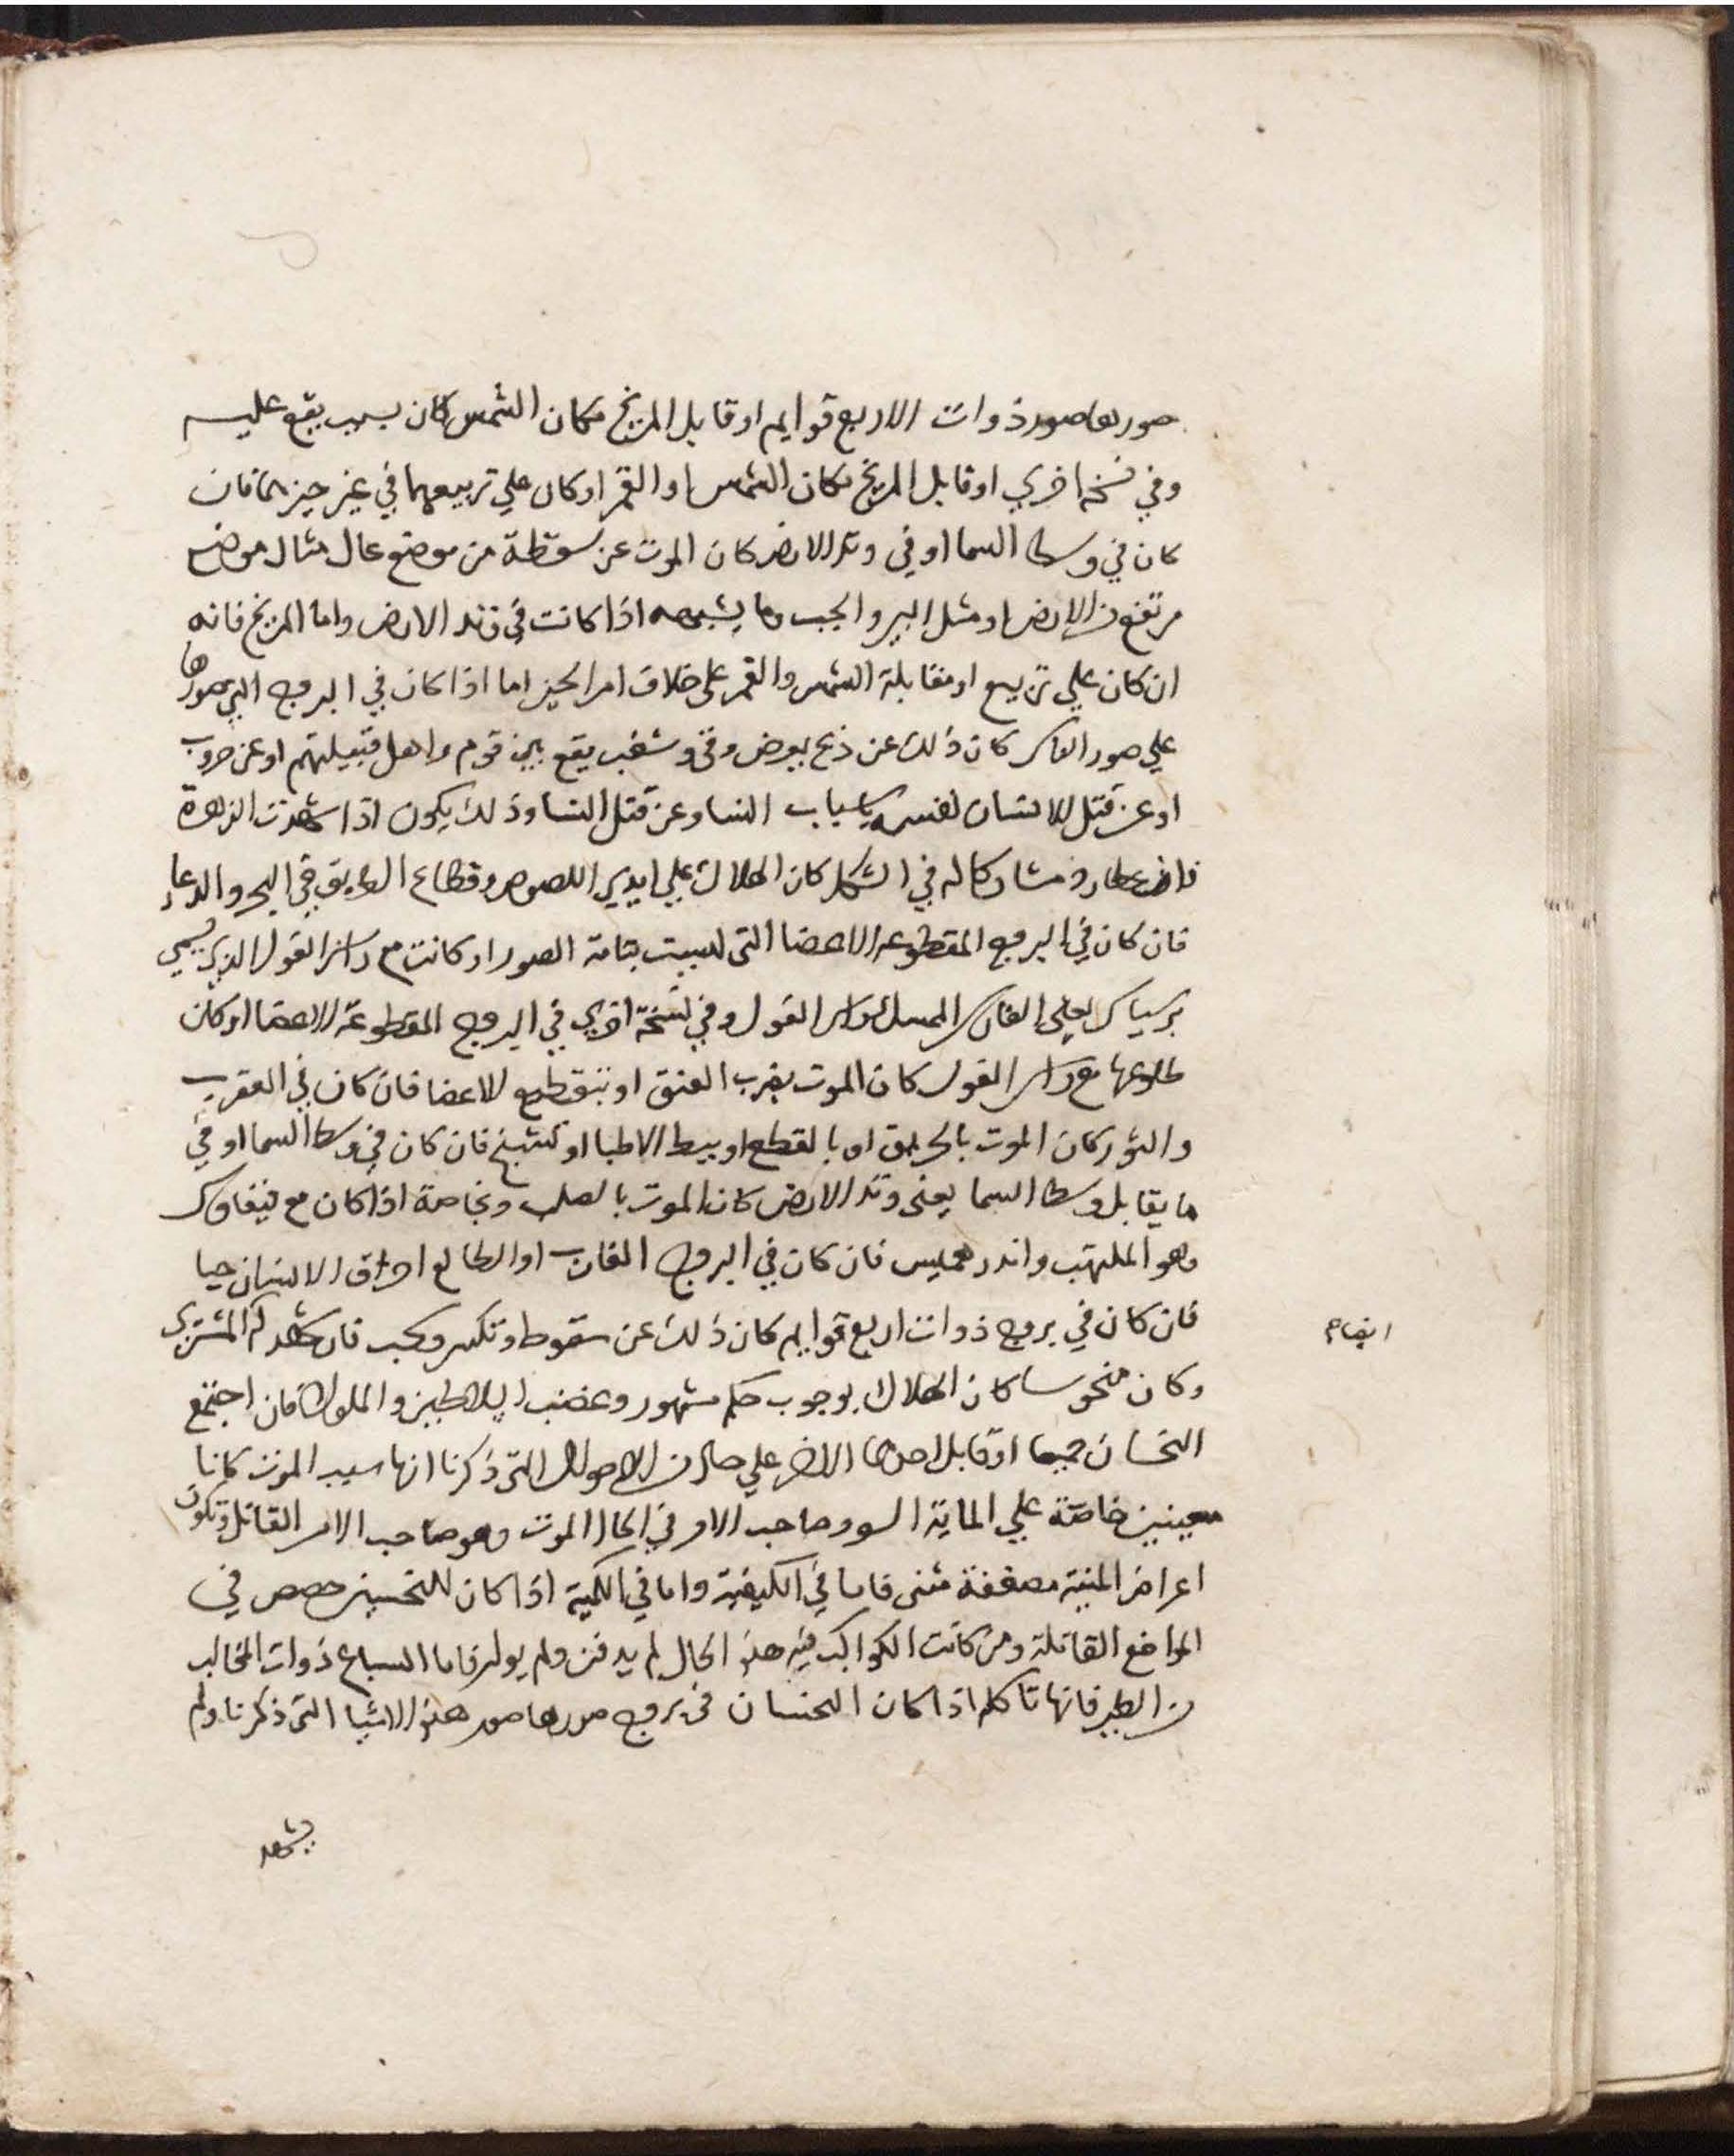 صورها صور ذوات الاربع قوايم او قابل المريخ مكان الشمس كان بسبب يقع عليه
وفي نسخه اخري او قابل المريخ مكان الشمس او القمر او كان علي تربيعهما في غير حيزهما فان
كان في وسط السما او في وتد الارض كان الموت عن سقطة من موضع عال مثال موضع
مرتفع من الارض او مثل البير والجب وما يشبهه اذا كانت في وتد الارض واما المريخ فانه
ان كان علي تربيع او مقابلة الشمس والقمر علي خلاف امر الحيز اما اذا كان في البروج التي صورها
علي صور الناس كان ذلك عن ذبح يعرض وفي وشغب يقع بين قوم واهل قبيلتهم او عن حروب
او عن قتل الانسان لنفسه باسباب النسا وعن قتل النسا وذلك يكون اذا شهدت الزهرة
فان عطارد مشاركا له في الشكل كان الهلاك علي ايدي اللصوص وقطاع الطريق في البحر والدعار
فان كان في البروج المقطوعه الاعضا التي ليست بتامة الصور او كانت مع راس الغول الذي يسمي
برسياس يعني الفارس الممسك براس الغول وفي نسخة اخري في البروج المقطوعة الاعضا او كان
طلوعها مع راس الغول كان الموت بضرب العنق او بتقطيع الاعضا فان كان في العقرب
والثور كان الموت بالحريق او بالقطع او ببط الاطبا او تشنج فان كان في وسط السما او في
ما يقابل وسط السما يعني وتد الارض كان الموت بالصلب وبخاصة اذا كان مع قيفاوس
وهو الملتهب واندرهميس فان كان في البروج الغارب او الطالع احرق الانسان حيا
فان كان في بروج ذوات اربع قوايم كان ذلك عن سقوط وتكسر وكب فان شهد لهم المشتري
ايضا م
وكان منحوسا كان الهلاك بوجوب حكم مشهور وغضب السلاطين والملوك فان اجتمع
النحسان جميعا او قابل احدهما الاخر علي حال من الاحوال التي ذكرنا انها سبب الموت كانا
معينين خاصة علي الماية السو وصاحب الامر في الحال الموت وهو صاحب الامر القاتل وتكون
اعراض المنية مضعفة مثنى فاما في الكيفية واما في الكمية اذا كان للنحسين حصص في
المواضع القاتلة ومن كانت الكواكب فيه هذه الحال لم يدفن ولم يولر فاما السباع ذوات المخالب
من الطير فانها تاكله اذا كان النحسان في بروج صورها صور هذه الاشيا التي ذكرنا ولم
يشهد